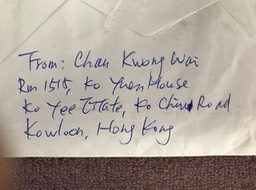 From: Chan Kwong Wai
Rm 1515, Ko Yuen House
Ko Yee Estate, Ko Chiu Road
Kowloon, Hong Kong